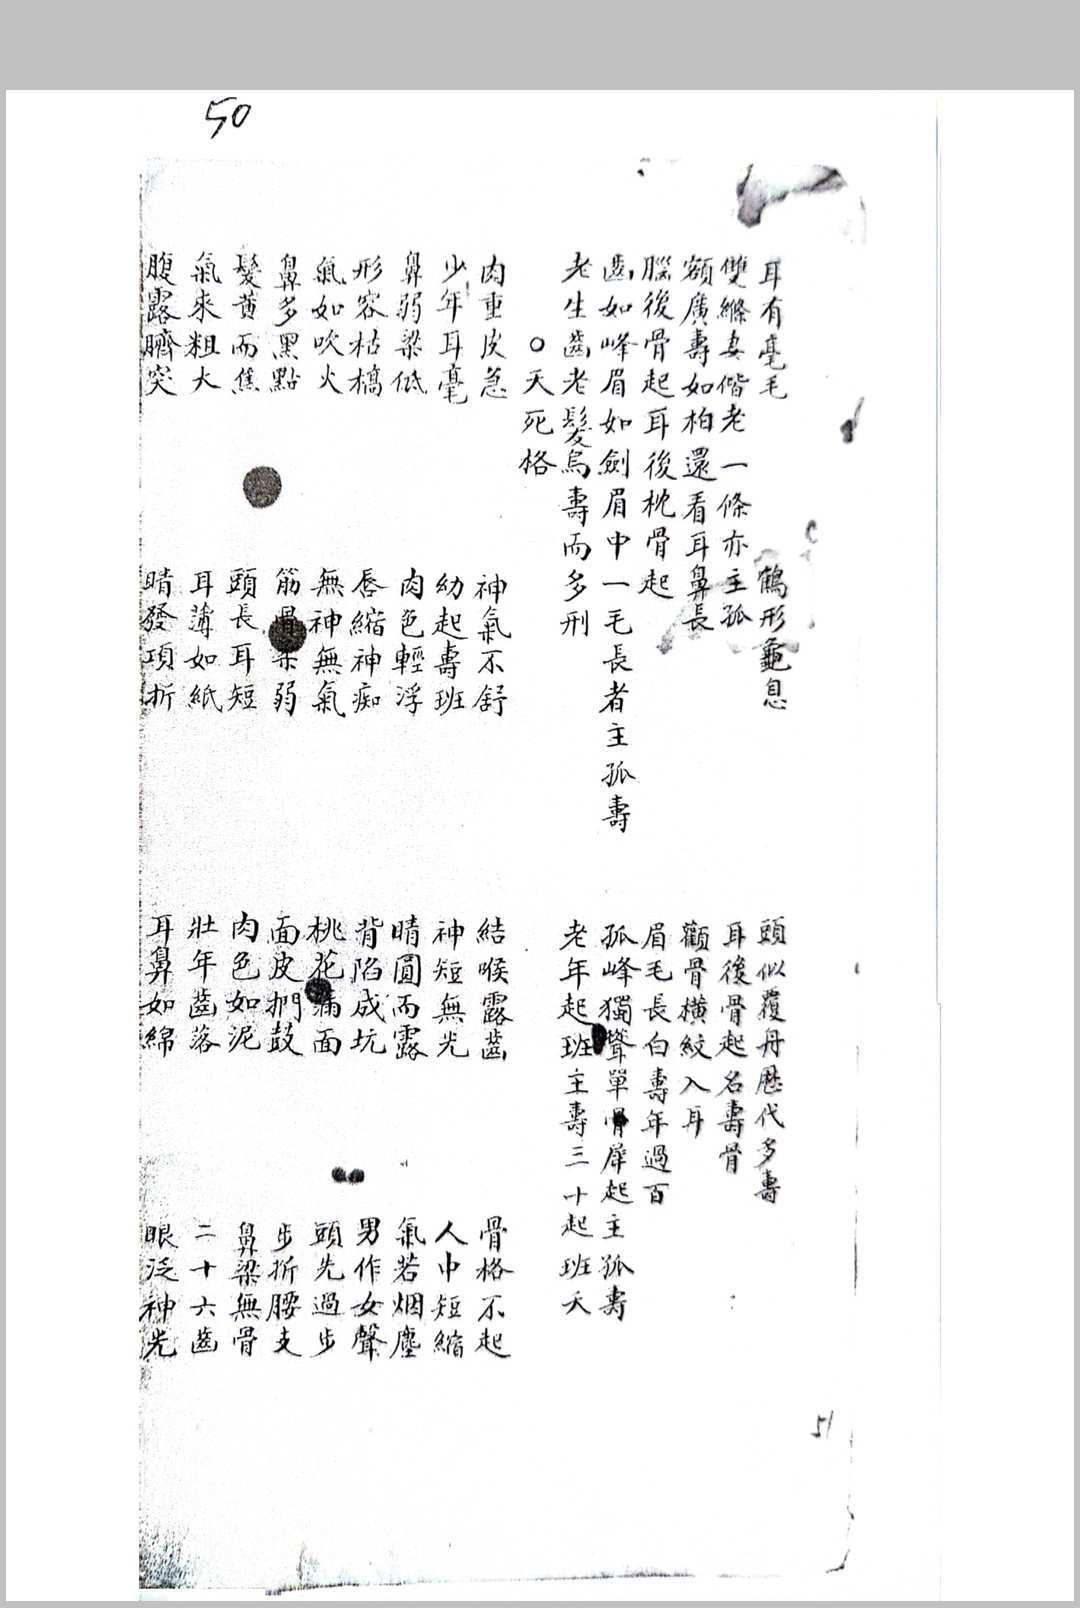 50
耳有毫毛 鶴形龜息 頭似覆舟歷代多壽
雙絛妻偕老一條亦主孤 耳後骨起名壽骨
額廣壽如柏還看耳鼻長 顴骨橫紋入耳
腦後骨起耳後枕骨起 眉毛長白壽年過百
齒如峰眉如劍眉中一毛長者主孤壽 孤峰獨聳單骨犀起主孤壽
老生齒老髮烏壽而多刑 老年起班主壽三十起班夭
○夭死格
肉重皮急 神氣不舒 結喉露齒 骨格不起
少年耳毫 幼起壽班 神短無光 人中短縮
鼻弱梁低 肉色輕浮 睛圓而露 氣若烟塵
形容枯槁 唇縮神痴 背陷成坑 男作女聲
氣如吹火 無神無氣 桃花滿面 頭先過步
鼻多黑點 筋骨柔弱 面皮捫鼓 步折腰支
髮黃而焦 頭長耳短 肉色如泥 鼻梁無骨
氣來粗大 耳薄如紙 壯年齒落 二十六齒
腹露臍突 睛發項折 耳鼻如綿 眼泛神光
51